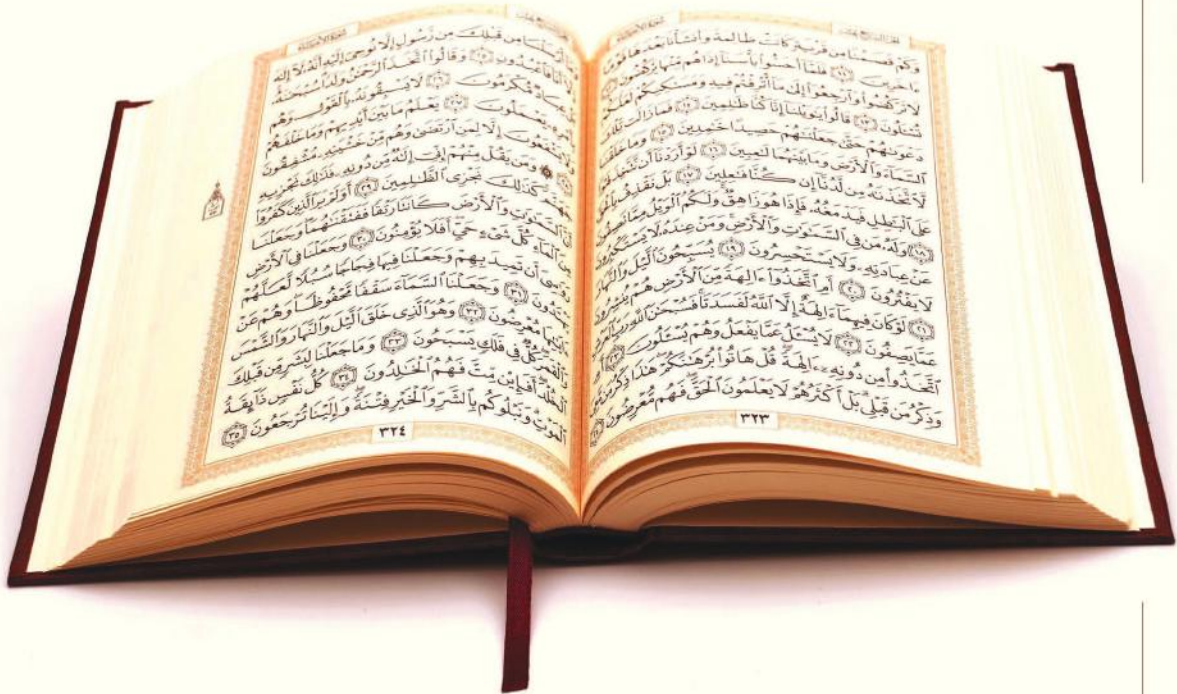 وَكَمْ قَصَمْنَا مِن قَرْيَةٍ كَانَتْ ظَالِمَةً وَأَنشَأْنَا بَعْدَهَا قَوْمًا
ءَاخَرِينَ ١١ فَلَمَّآ أَحَسُّوا۟ بَأْسَنَآ إِذَا هُم مِّنْهَا يَرْكُضُونَ ١٢
لَا تَرْكُضُوا۟ وَٱرْجِعُوٓا۟ إِلَىٰ مَآ أُتْرِفْتُمْ فِيهِ وَمَسَـٰكِنِكُمْ لَعَلَّكُمْ
تُسْـَٔلُونَ ١٣ قَالُوا۟ يَـٰوَيْلَنَآ إِنَّا كُنَّا ظَـٰلِمِينَ ١٤ فَمَا زَالَت تِّلْكَ
دَعْوَىٰهُمْ حَتَّىٰ جَعَلْنَـٰهُمْ حَصِيدًا خَـٰمِدِينَ ١٥ وَمَا خَلَقْنَا
ٱلسَّمَآءَ وَٱلْأَرْضَ وَمَا بَيْنَهُمَا لَـٰعِبِينَ ١٦ لَوْ أَرَدْنَآ أَن نَّتَّخِذَ لَهْوًا
لَّٱتَّخَذْنَـٰهُ مِن لَّدُنَّآ إِن كُنَّا فَـٰعِلِينَ ١٧ بَلْ نَقْذِفُ بِٱلْحَقِّ
عَلَى ٱلْبَـٰطِلِ فَيَدْمَغُهُۥ فَإِذَا هُوَ زَاهِقٌ وَلَكُمُ ٱلْوَيْلُ مِمَّا تَصِفُونَ
١٨ وَلَهُۥ مَن فِى ٱلسَّمَـٰوَٰتِ وَٱلْأَرْضِ وَمَنْ عِندَهُۥ لَا يَسْتَكْبِرُونَ
عَنْ عِبَادَتِهِۦ وَلَا يَسْتَحْسِرُونَ ١٩ يُسَبِّحُونَ ٱلَّيْلَ وَٱلنَّهَارَ
لَا يَفْتُرُونَ ٢٠ أَمِ ٱتَّخَذُوٓا۟ ءَالِهَةً مِّنَ ٱلْأَرْضِ هُمْ يُنشِرُونَ
٢١ لَوْ كَانَ فِيهِمَآ ءَالِهَةٌ إِلَّا ٱللَّهُ لَفَسَدَتَا فَسُبْحَـٰنَ ٱللَّهِ رَبِّ ٱلْعَرْشِ
عَمَّا يَصِفُونَ ٢٢ لَا يُسْـَٔلُ عَمَّا يَفْعَلُ وَهُمْ يُسْـَٔلُونَ ٢٣ أَمِ
ٱتَّخَذُوا۟ مِن دُونِهِۦٓ ءَالِهَةً قُلْ هَاتُوا۟ بُرْهَـٰنَكُمْ هَـٰذَا ذِكْرُ مَن مَّعِىَ
وَذِكْرُ مَن قَبْلِى بَلْ أَكْثَرُهُمْ لَا يَعْلَمُونَ ٱلْحَقَّ فَهُم مُّعْرِضُونَ ٢٤
٣٢٣
أَرْسَلْنَا مِن قَبْلِكَ مِن رَّسُولٍ إِلَّا نُوحِىٓ إِلَيْهِ أَنَّهُۥ لَآ إِلَـٰهَ
إِلَّآ أَنَا۠ فَٱعْبُدُونِ ٢٥ وَقَالُوا۟ ٱتَّخَذَ ٱلرَّحْمَـٰنُ وَلَدًا سُبْحَـٰنَهُۥ
عِبَادٌ مُّكْرَمُونَ ٢٦ لَا يَسْبِقُونَهُۥ بِٱلْقَوْلِ وَهُم
بِأَمْرِهِۦ يَعْمَلُونَ ٢٧ يَعْلَمُ مَا بَيْنَ أَيْدِيهِمْ وَمَا خَلْفَهُمْ
وَلَا يَشْفَعُونَ إِلَّا لِمَنِ ٱرْتَضَىٰ وَهُم مِّنْ خَشْيَتِهِۦ مُشْفِقُونَ
٢٨ ۞ وَمَن يَقُلْ مِنْهُمْ إِنِّىٓ إِلَـٰهٌ مِّن دُونِهِۦ فَذَٰلِكَ نَجْزِيهِ
جَهَنَّمَ كَذَٰلِكَ نَجْزِى ٱلظَّـٰلِمِينَ ٢٩ أَوَلَمْ يَرَ ٱلَّذِينَ كَفَرُوٓا۟
أَنَّ ٱلسَّمَـٰوَٰتِ وَٱلْأَرْضَ كَانَتَا رَتْقًا فَفَتَقْنَـٰهُمَا وَجَعَلْنَا
مِنَ ٱلْمَآءِ كُلَّ شَىْءٍ حَىٍّ أَفَلَا يُؤْمِنُونَ ٣٠ وَجَعَلْنَا فِى ٱلْأَرْضِ
رَوَٰسِىَ أَن تَمِيدَ بِهِمْ وَجَعَلْنَا فِيهَا فِجَاجًا سُبُلًا لَّعَلَّهُمْ
يَهْتَدُونَ ٣١ وَجَعَلْنَا ٱلسَّمَآءَ سَقْفًا مَّحْفُوظًا وَهُمْ عَنْ
ءَايَـٰتِهَا مُعْرِضُونَ ٣٢ وَهُوَ ٱلَّذِى خَلَقَ ٱلَّيْلَ وَٱلنَّهَارَ وَٱلشَّمْسَ
وَٱلْقَمَرَ كُلٌّ فِى فَلَكٍ يَسْبَحُونَ ٣٣ وَمَا جَعَلْنَا لِبَشَرٍ مِّن قَبْلِكَ
ٱلْخُلْدَ أَفَإِي۟ن مِّتَّ فَهُمُ ٱلْخَـٰلِدُونَ ٣٤ كُلُّ نَفْسٍ ذَآئِقَةُ
ٱلْمَوْتِ وَنَبْلُوكُم بِٱلشَّرِّ وَٱلْخَيْرِ فِتْنَةً وَإِلَيْنَا تُرْجَعُونَ ٣٥
٣٢٤